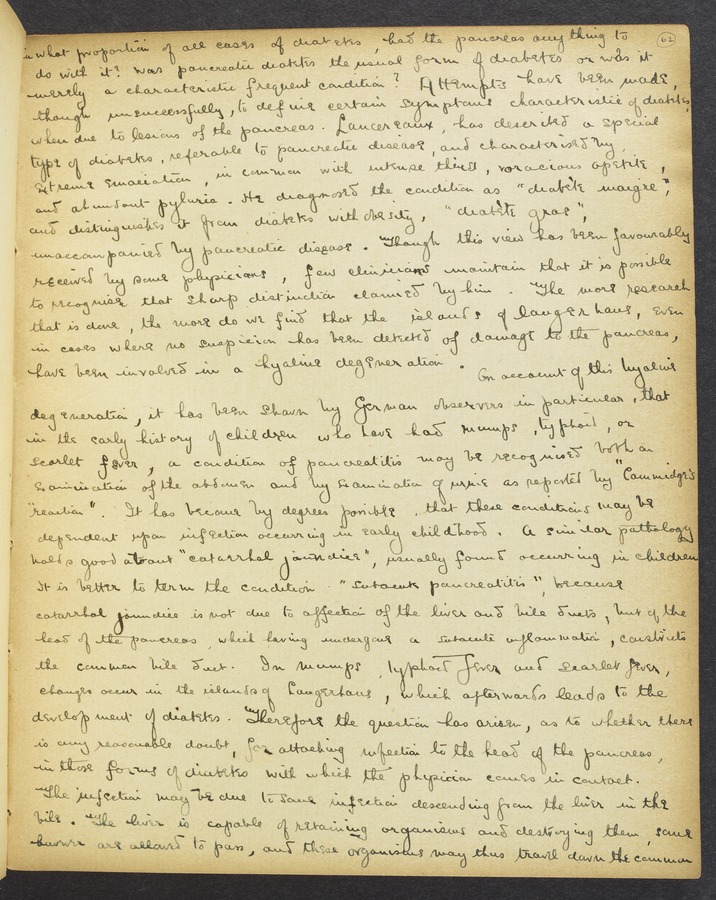 in what proportion of all cases of diabetes, had the pancreas any thing to
62
do with it? Was pancreatic diabetes the usual form of diabetes or was it
merely a characteristic frequent condition? Attempts have been made,
though unsuccessfully, to define certain symptoms characteristic of diabetes,
when due to lesions of the pancreas. Lancereaux, has described a special
type of diabetes, referable to pancreatic disease, and characterised by
extreme emaciation, in common with intense thirst, voracious apetite,
and abundant pyluria. He diagnosed the condition as "diabète maigre",
and distinguishes it from diabetes with obesity, "diabète gras",
unaccompanied by pancreatic disease. Though this view has been favourably
received by some physicians, few clinicians maintain that it is possible
to recognise that sharp distinction claimed by him. The more research
that is done, the more do we find that the islands of Langerhans, even
in cases where no suspicion has been detected of damage to the pancreas,
have been involved in a hyaline degeneration. On account of this hyaline
degeneration, it has been shown by German observers in particular, that
in the early history of children who have had mumps, typhoid, or
scarlet fever, a condition of pancreatitis may be recognised both on
examination of the abdomen and by examination of urine as reported by "Cammidge's
reaction". It has become by degrees possible, that these conditions may be
dependent upon infection occurring in early childhood. A similar pathology
holds good about "catarrhal jaundice", usually found occurring in children
It is better to term the condition "subacute pancreatitis", because
catarrhal jaundice is not due to affection of the liver and bile ducts, but of the
head of the pancreas, which having undergone a subacute inflammation, constricts
the common bile duct. In mumps, typhoid fever and scarlet fever,
changes occur in the islands of Langerhans, which afterwards leads to the
development of diabetes. Therefore the question has arisen, as to whether there
is any reasonable doubt, for attaching infection to the head of the pancreas,
in those forms of diabetes with which the physician comes in contact.
The infection may be due to some infection descending from the liver in the
bile. The liver is capable of retaining organisms and destroying them, some
however are allowed to pass, and these organisms may thus travel down the common